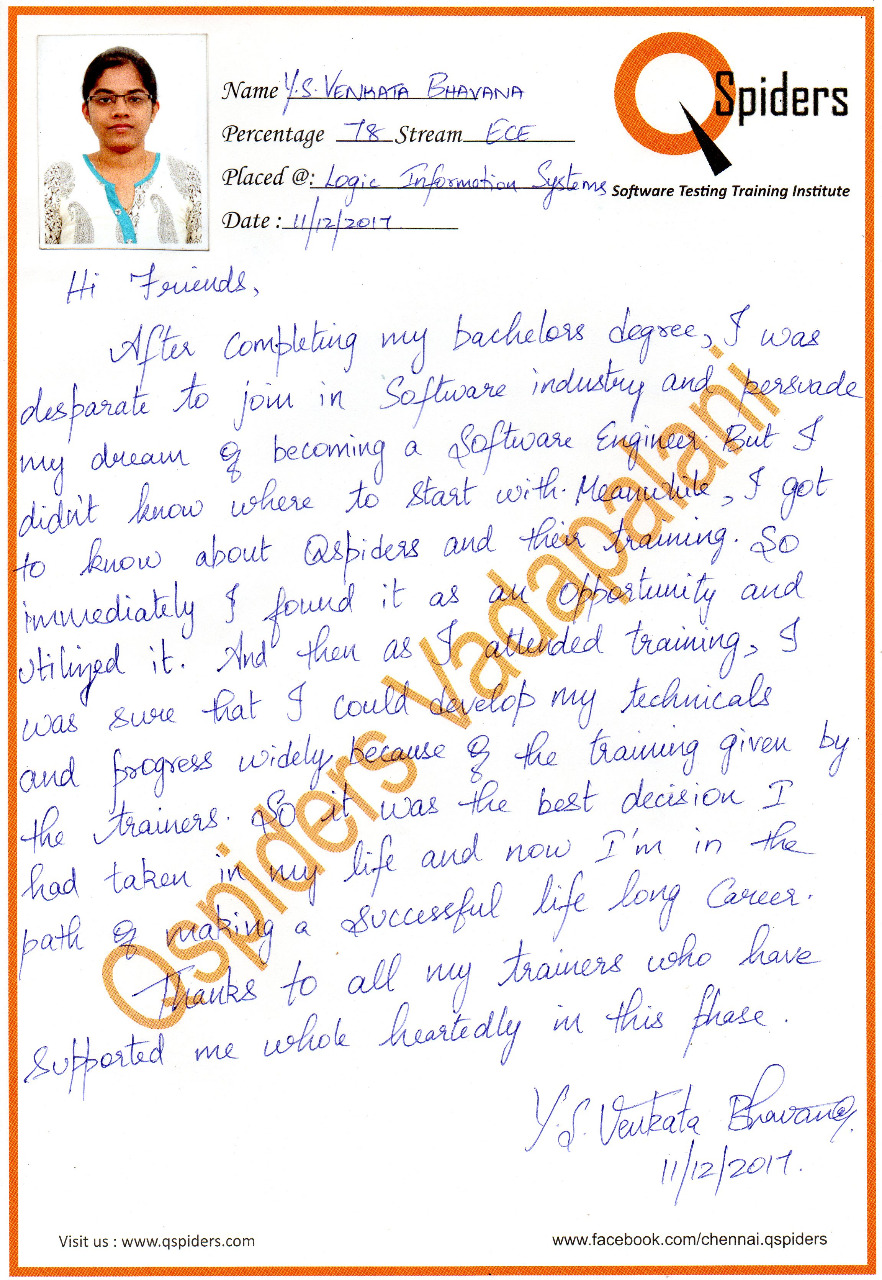 Name Y.S. VENKATA BHAVANA
Percentage 78 Stream ECE
Placed @: Logic Information Systems
Date : 11/12/2017
QSpiders
Software Testing Training Institute
Hi Friends,
After completing my bachelors degree, I was
desparate to join in Software industry and persvade
my dream of becoming a Software Engineer. But I
didn't know where to start with. Meanwhile, I got
to know about Qspiders and their training. So
immediately I found it as an opportunity and
utilized it. And then as I attended training, I
was sure that I could develop my technicals
and progress widely because of the training given by
the trainers. So it was the best decision I
had taken in my life and now I'm in the
path of making a successful life long Career.
Thanks to all my trainers who have
Supported me whole heartedly in this phase.
Y.S. Venkata Bhavana
11/12/2017.
Qspiders Vadapalani
Visit us : www.qspiders.com
www.facebook.com/chennai.qspiders